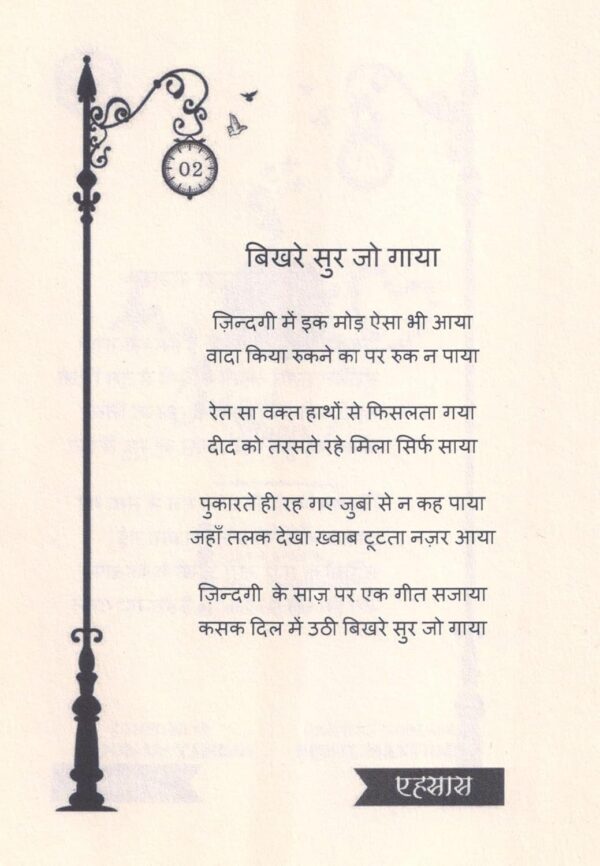 02
बिखरे सुर जो गाया
ज़िन्दगी में इक मोड़ ऐसा भी आया
वादा किया रुकने का पर रुक न पाया
रेत सा वक्त हाथों से फिसलता गया
दीद को तरसते रहे मिला सिर्फ साया
पुकारते ही रह गए जुबां से न कह पाया
जहाँ तलक देखा ख़्वाब टूटता नज़र आया
ज़िन्दगी के साज़ पर एक गीत सजाया
कसक दिल में उठी बिखरे सुर जो गाया
एहसास